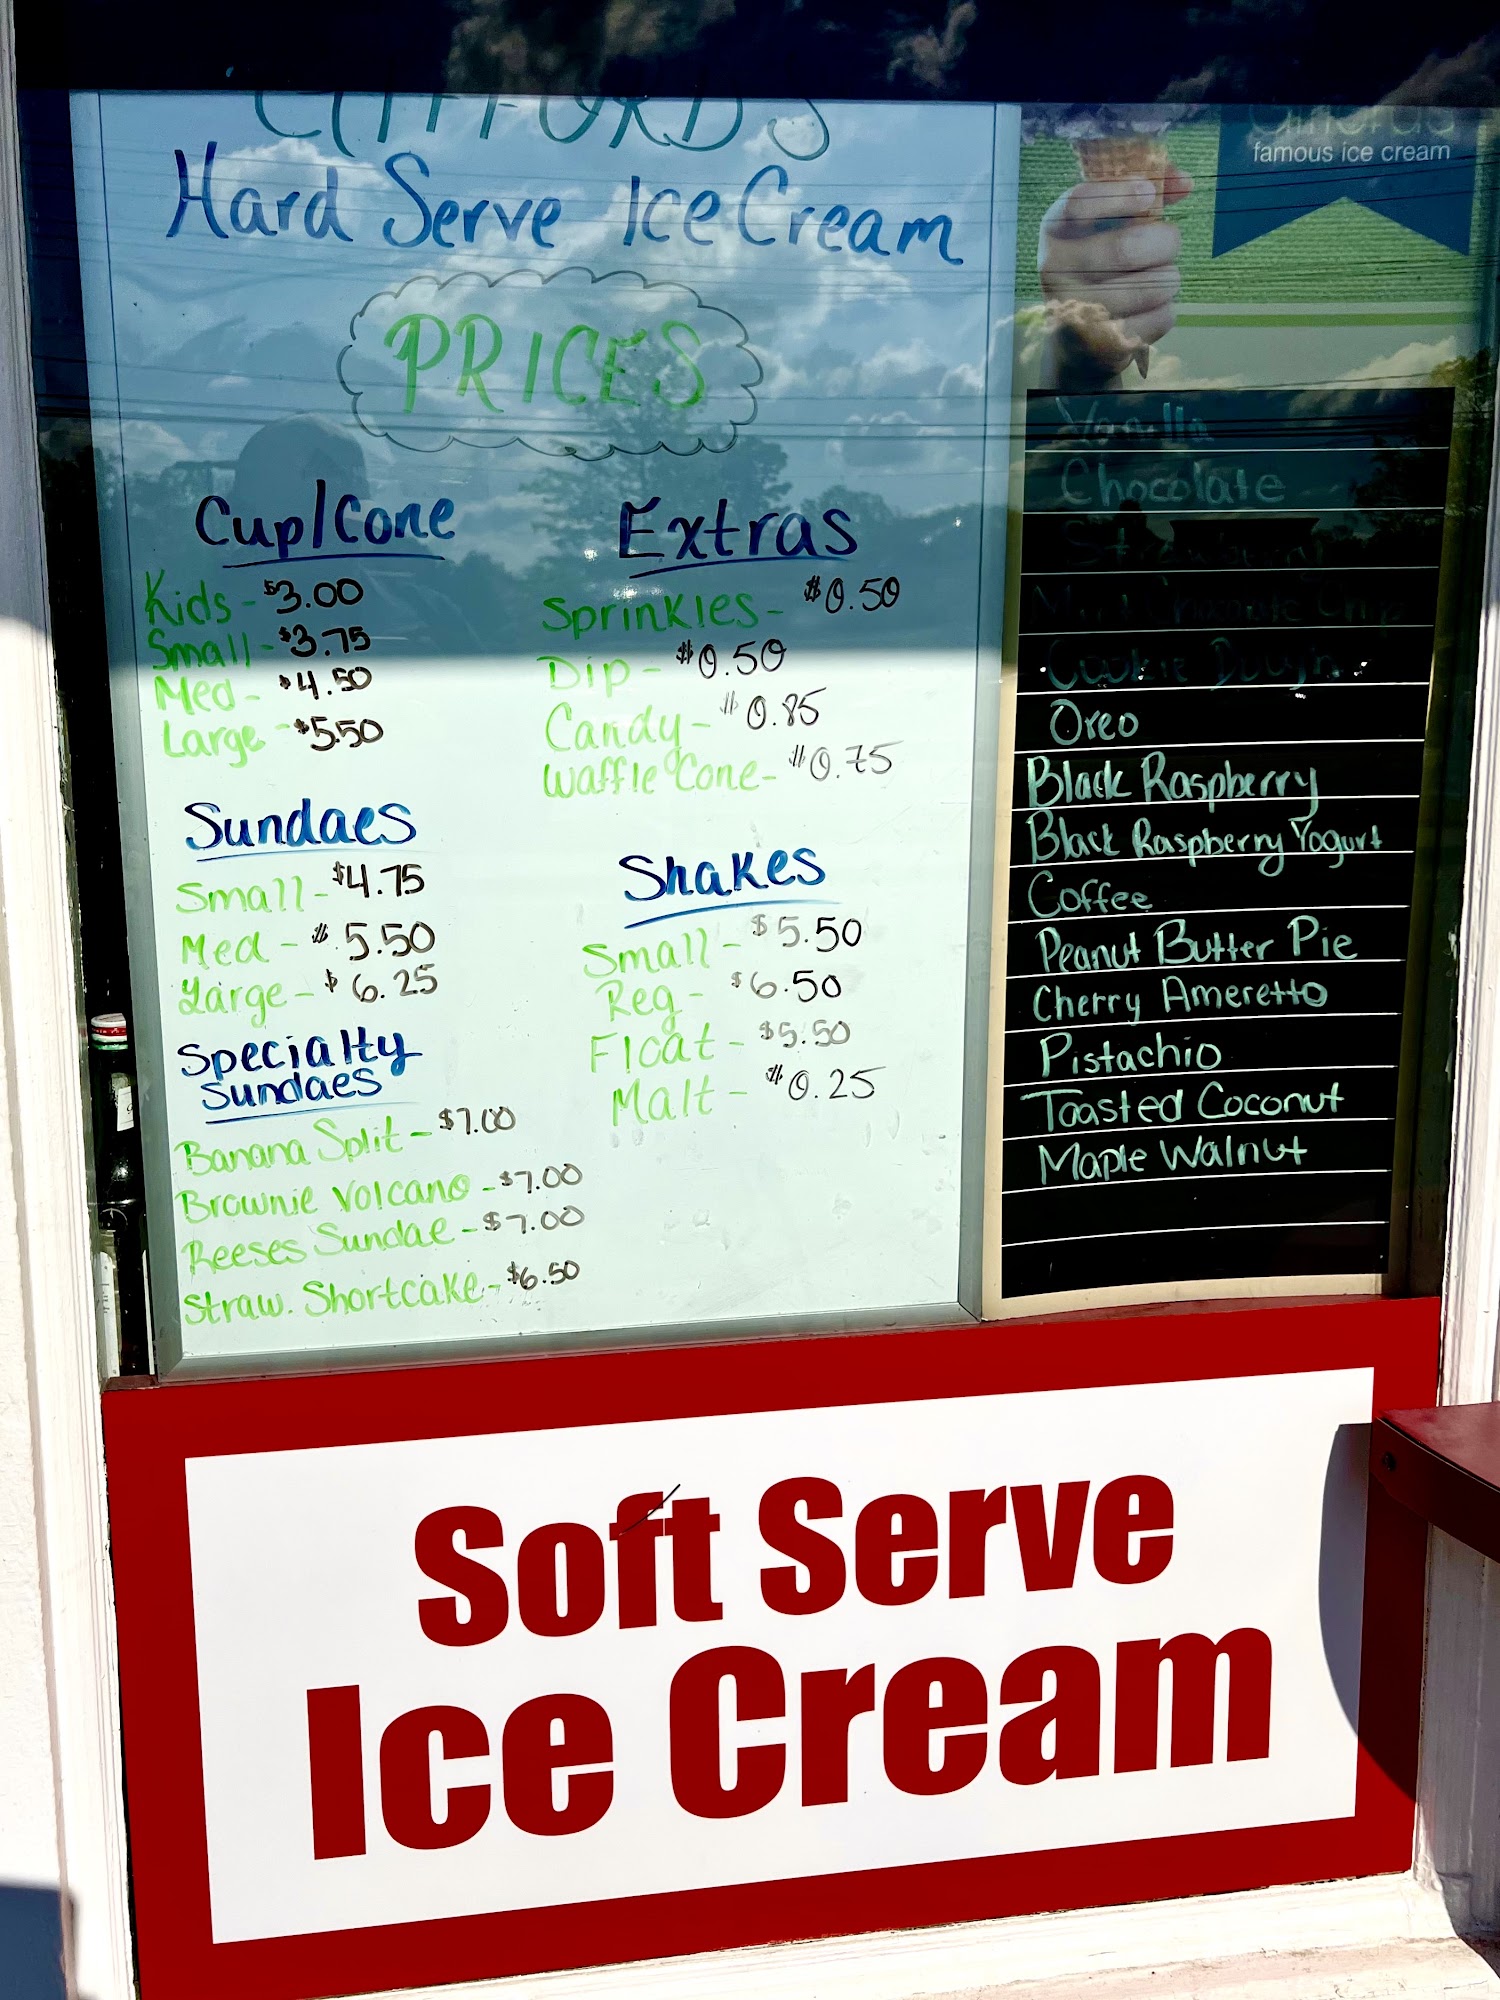 GIFFORD'S
Hard Serve Ice Cream
PRICES
Cup/Cone
Kids - $3.00
Small - $3.75
Med - $4.50
Large - $5.50
Sundaes
Small - $4.75
Med - $5.50
Large - $6.25
Specialty
Sundaes
Banana Split - $7.00
Brownie Volcano - $7.00
Reeses Sundae - $7.00
Straw. Shortcake - $6.50
Extras
Sprinkles - $0.50
Dip - $0.50
Candy - $0.85
Waffle Cone - $0.75
Shakes
Small - $5.50
Reg - $6.50
Float - $5.50
Malt - $0.25
famous ice cream
Vanilla
Chocolate
Strawberry
Mint Chocolate Chip
Cookie Dough
Oreo
Black Raspberry
Black Raspberry Yogurt
Coffee
Peanut Butter Pie
Cherry Ameretto
Pistachio
Toasted Coconut
Maple Walnut
Soft Serve
Ice Cream